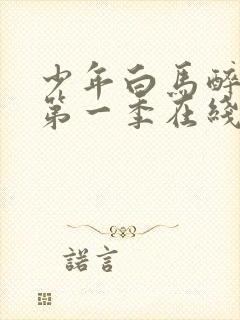 少年白馬醉
第一季在綫
諾言